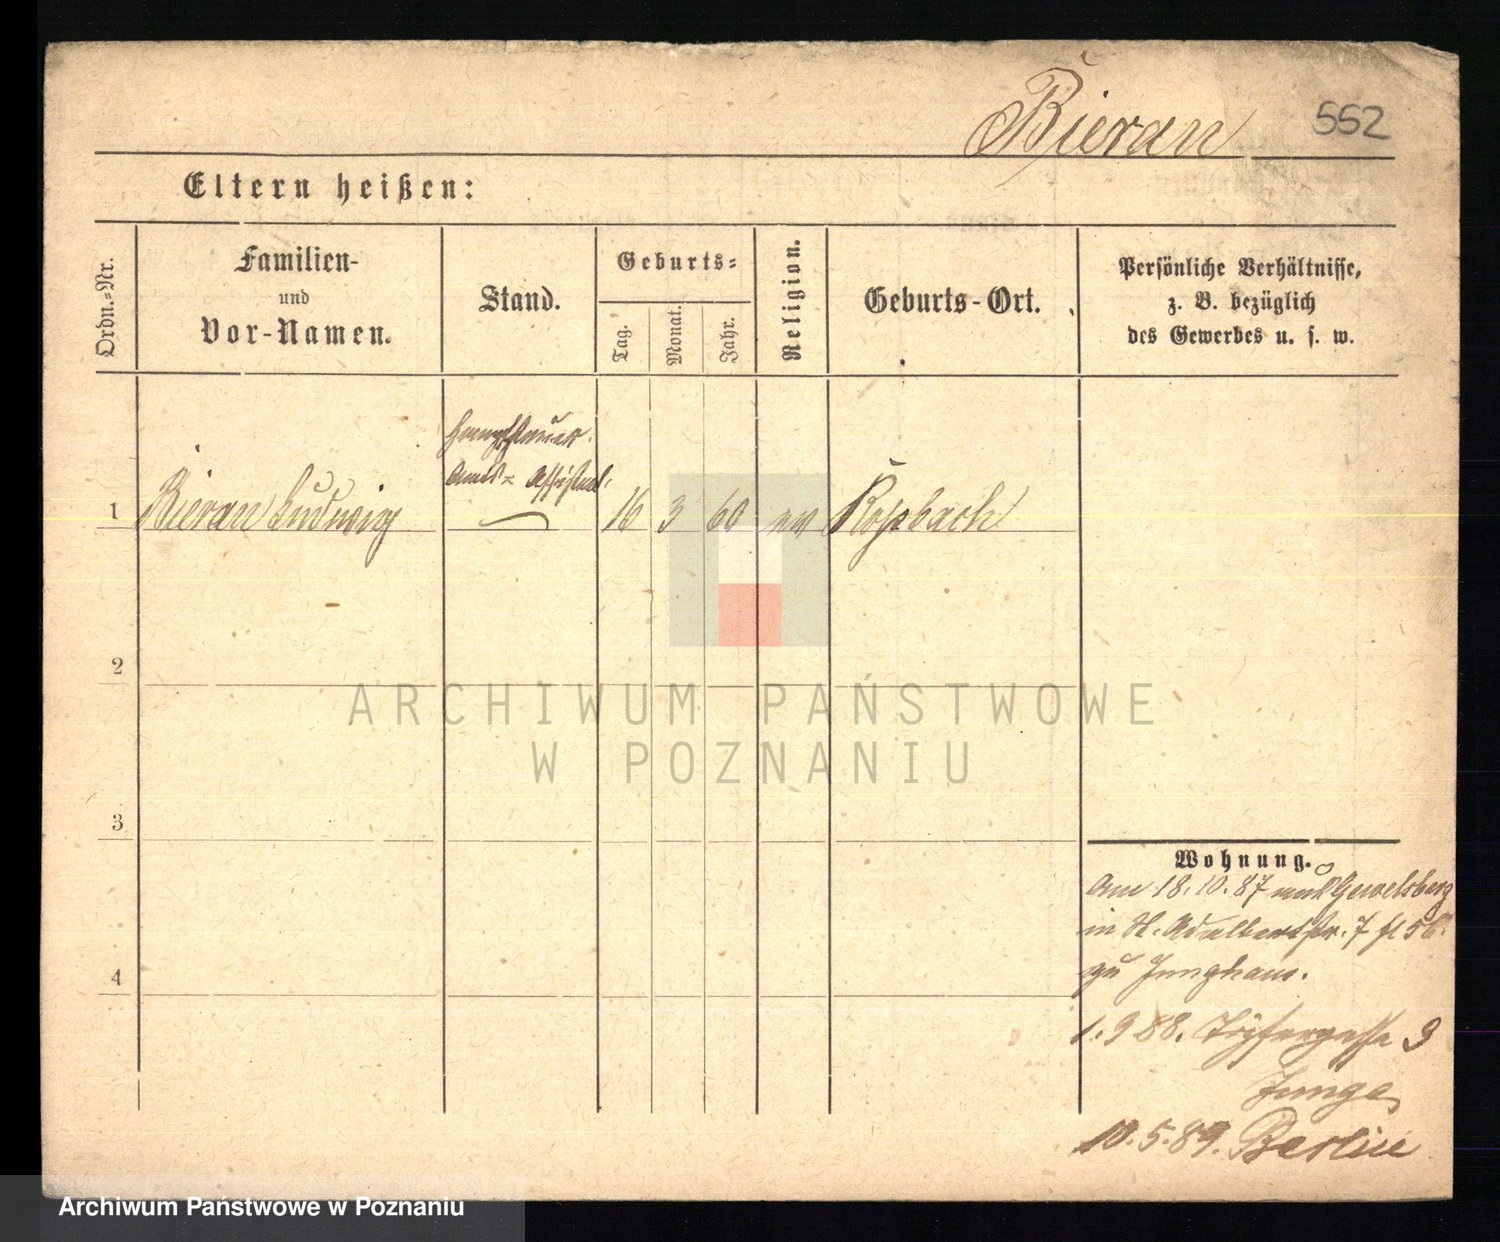 Bieran 552
Eltern heißen:
Ordn.=Nr.
Familien-
und
Vor-Namen.
Stand.
Geburts=
Tag.
Monat.
Jahr.
Religion.
Geburts-Ort.
Persönliche Verhältnisse,
z. B. bezüglich
des Gewerbes u. s. w.
Hauptsteuer
Amts= Assistent
1 Bieran Ludwig 16 3 60 ev Roßbach
2
3
4
ARCHIWUM PAŃSTWOWE
W POZNANIU
Wohnung.
Am 18.10.87 aus Gevelsberg
in St. Adalbertstr. 7
zu Junghans.
1.9 88. Töpfergasse 9
Junge
10.5.89. Berlin
Archiwum Państwowe w Poznaniu